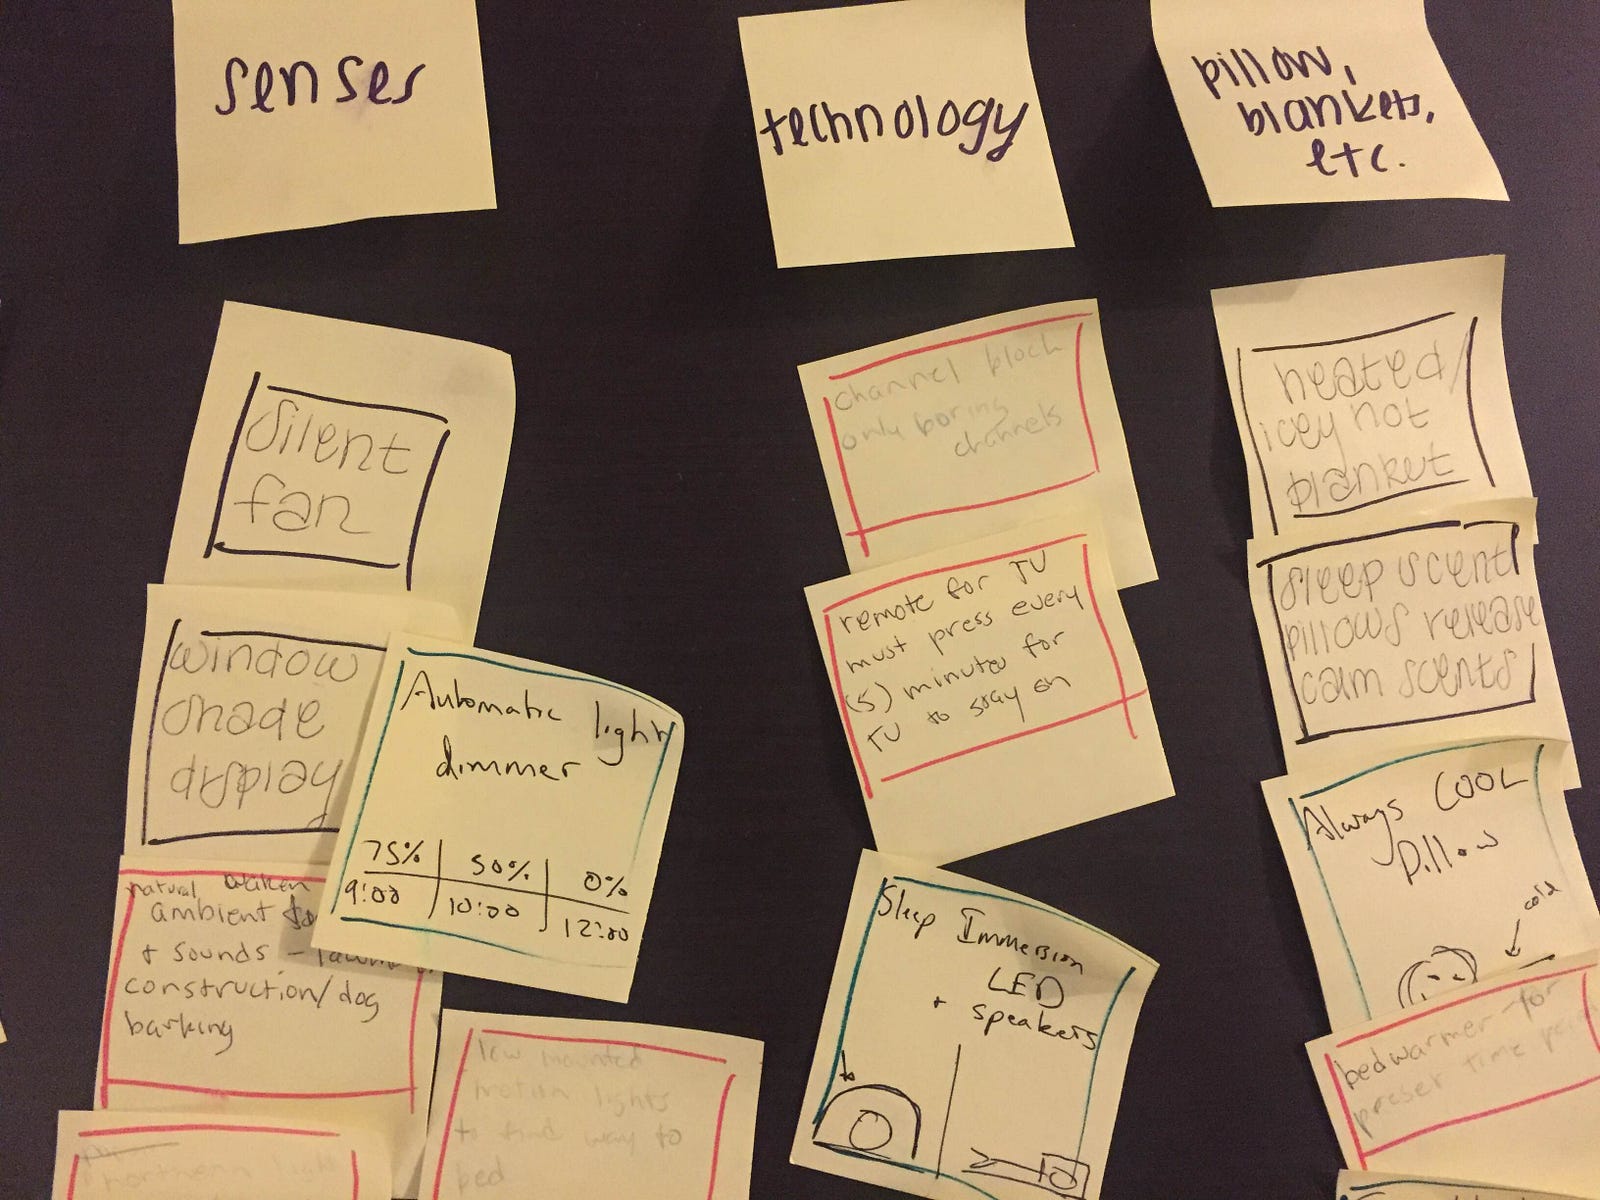 senses
silent
fan
window
shade
display
Automatic light
dimmer
75% 50% 0%
9:00 10:00 12:00
natural waken
ambient
+ sounds -
construction/dog
barking
low mounted
motion lights
to find way to
bed
northern light
technology
channel block
only boring
channels
remote for TV
must press every
(5) minutes for
TV to stay on
Sleep Immersion
LED
+ speakers
pillow,
blankets,
etc.
heated/
icey hot
blanket
sleep scent
pillows release
calm scents
Always COOL
Pillow
cold
bedwarmer for
preset time